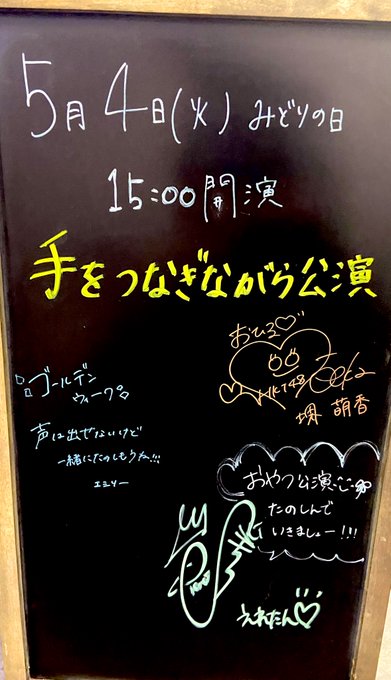 5月4日(火) みどりの日
15:00開演
手をつなぎながら公演
おひる♡
HKT48
堺 萌香
ゴールデン
ウィーク
声は出せないけど
一緒にたのしもうね!!!
エミリー
おやつ公演
たのしんで
いきましょー!!!
えれたん♡